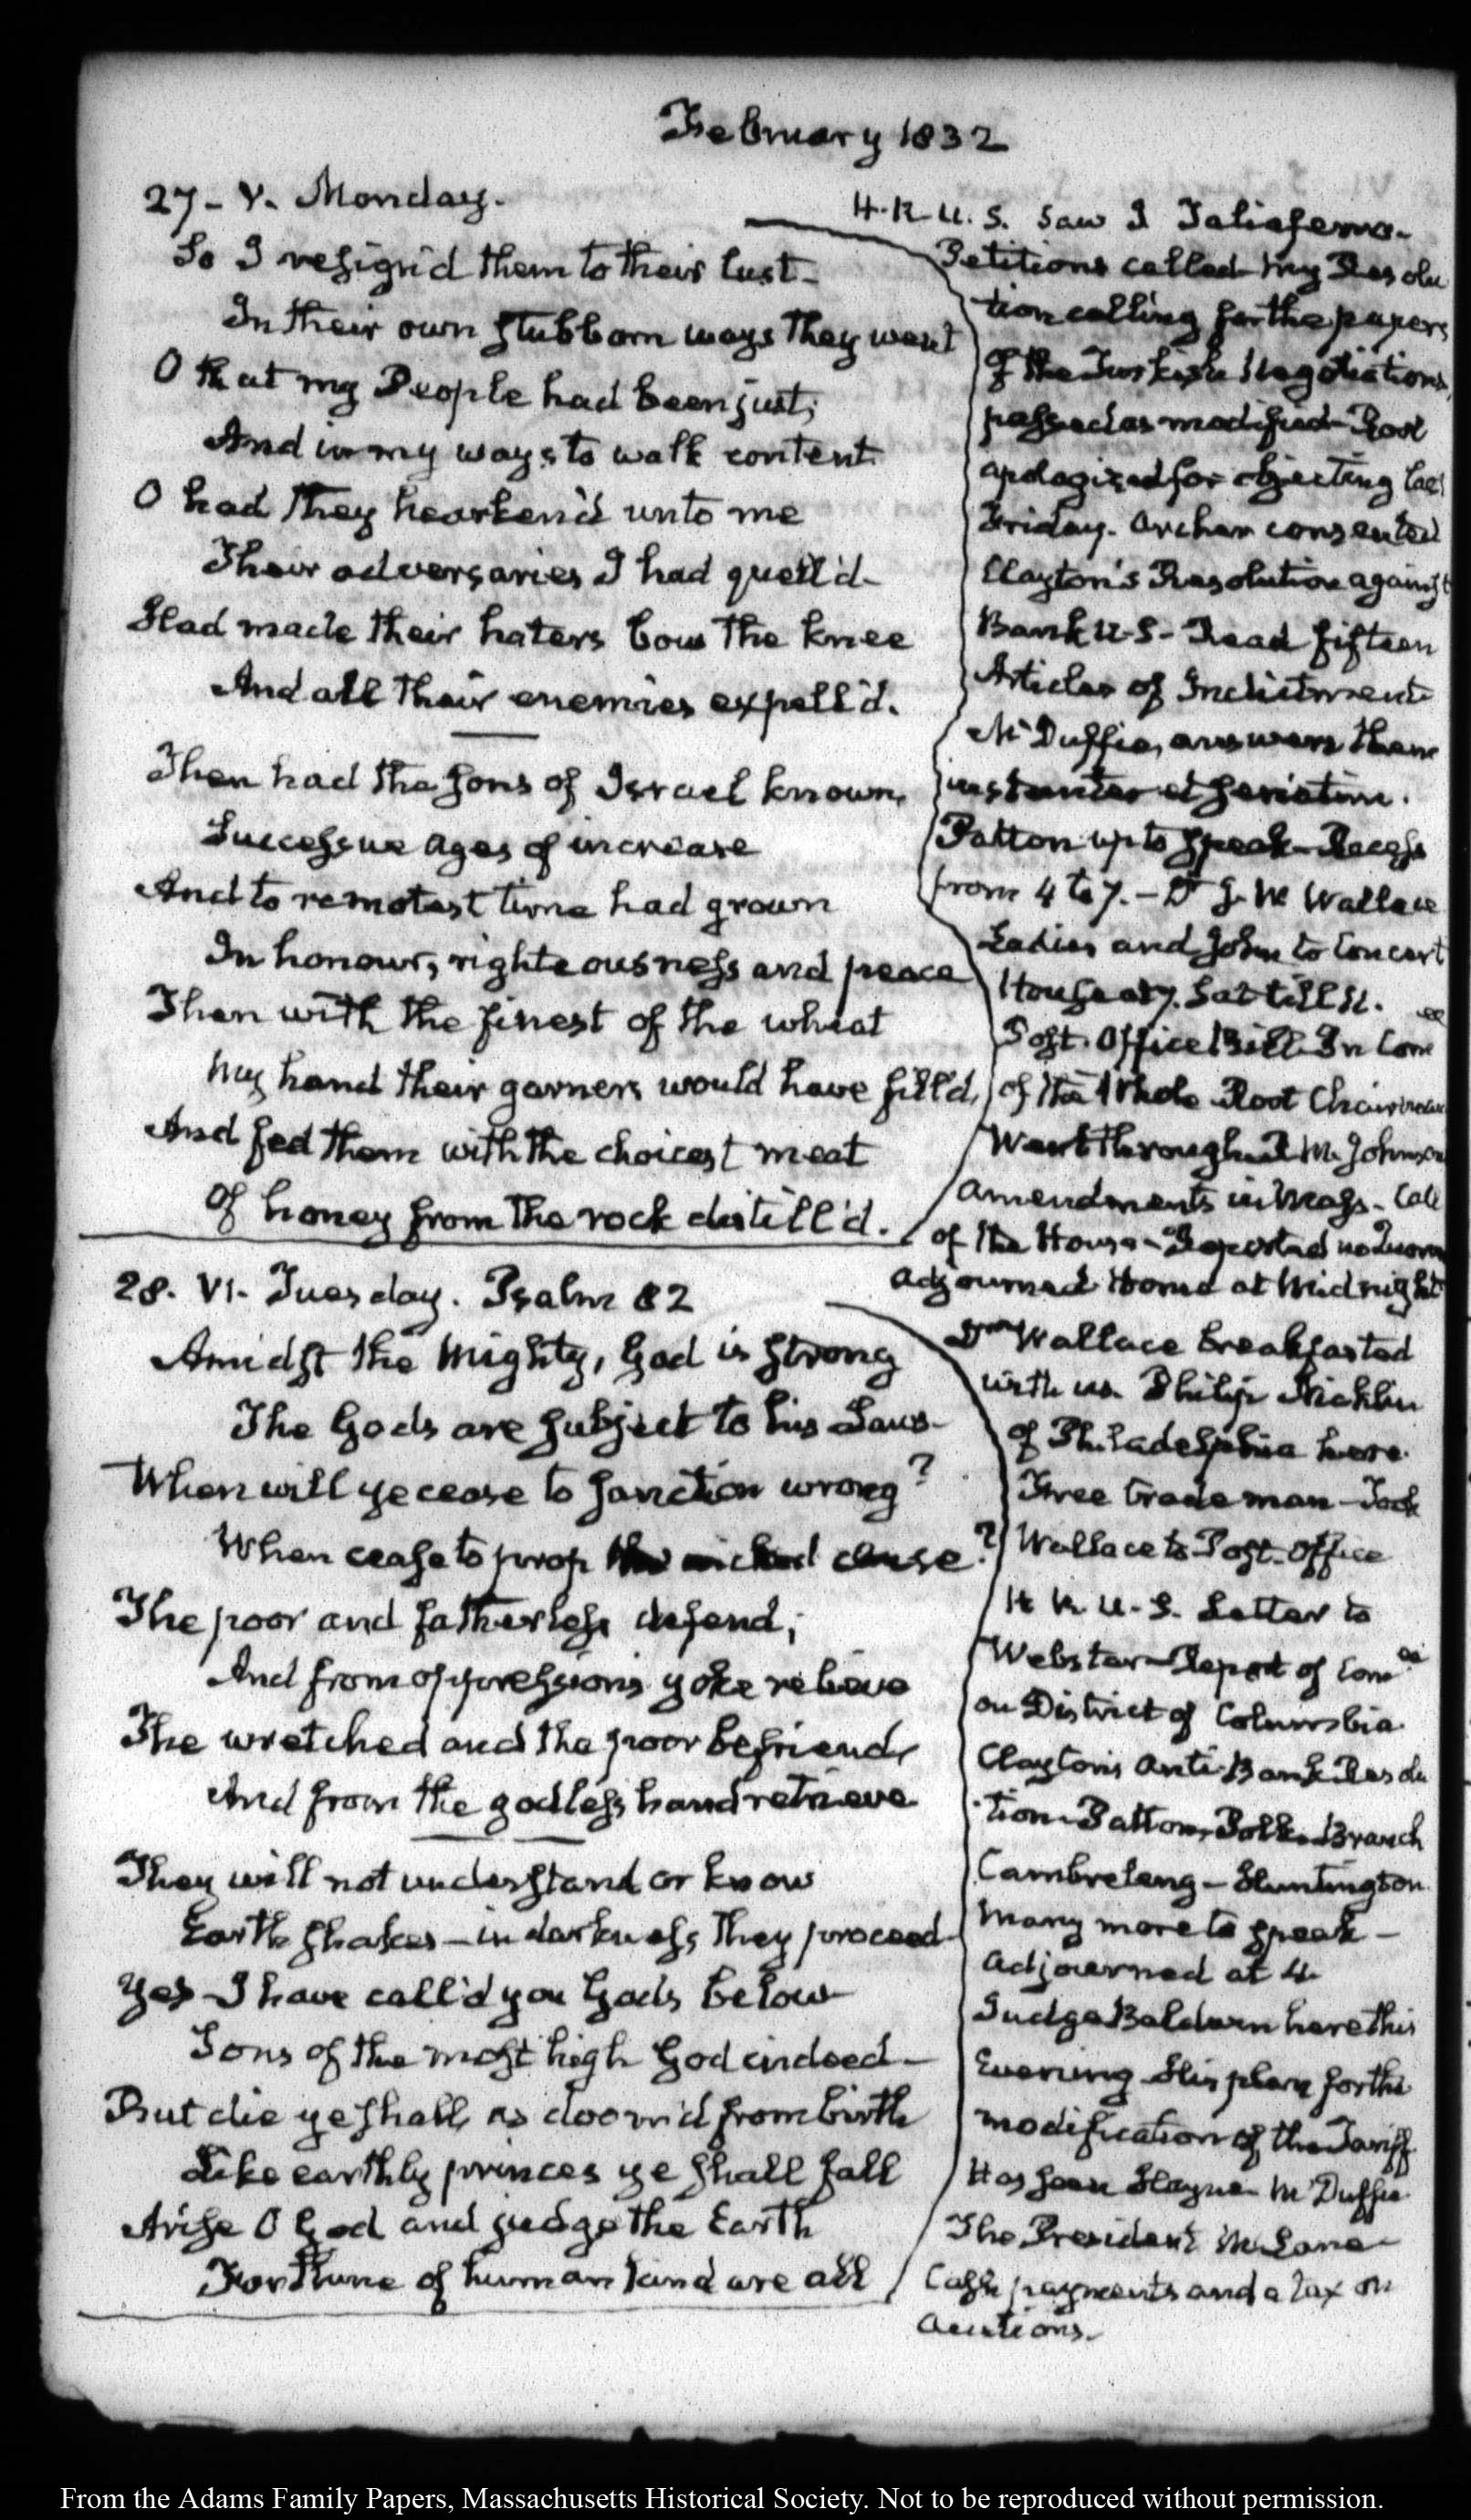 February 1832
27 - V. Monday.
So I resign'd them to their lust -
In their own stubborn ways they went
O that my People had been just;
And in my ways to walk content
O had they hearken'd unto me
Their adversaries I had quell'd -
Had made their haters bow the knee
And all their enemies expell'd.
Then had the sons of Israel known,
Successive ages of increase
And to remotest time had grown
In honour, righteousness and peace
Then with the finest of the wheat
My hand their garners would have fill'd,
And fed them with the choicest meat
Of honey from the rock distill'd.
H. R. U. S. Saw J Taliaferro -
Petitions called - my Resolu
tion calling for the papers
of the Turkish Negotiations,
passed as modified - Root
apologized for objecting last
Friday. Archer consented
Clayton's Resolution against
Bank U. S - Read fifteen
Articles of Indictment
McDuffie, answers them
instanter et seriatim.
Patton up to speak - Recess
from 4 to 7. - Dr J. W Wallace
Ladies and John to Concert
House at 7. Sat till 11.
Post. Office Bill In Com ee
of the Whole Root Chairman
Went through R M. Johnson
amendments in Mass - Call
of the House - Reported no Quorum
adjourned Home at Midnight
28. VI. Tuesday. Psalm 82
Amidst the Mighty, God is strong
The Gods are subject to his Laws -
When will ye cease to sanction wrong?
When cease to prop the wicked cause?
The poor and fatherless defend;
And from oppression's yoke relieve
The wretched and the poor befriend,
And from the godless hand retrieve
They will not understand or know
Earth shakes - in darkness they proceed -
Yes - I have call'd you Gods below
Sons of the most high God indeed -
But die ye shall, as doom'd from birth
Like earthly princes ye shall fall
Arise O God and judge the Earth
For thine of human kind are all
Wallace breakfasted
with us. Philip Nicklin
of Philadelphia here.
Free trade man - Took
Wallace to Post. Office
H R U. S. Letter to
Webster - Report of Comee
on District of Columbia
Clayton's Anti-Bank Resolu
tion - Patton, Polk. Branch
Cambreleng - Huntington.
Many more to speak -
Adjourned at 4.
Judge Baldwin here this
Evening His plan for the
modification of the Tariff.
Has seen Hayne McDuffie
The President McLane -
Cash payments and a tax on
Auctions. -
From the Adams Family Papers, Massachusetts Historical Society. Not to be reproduced without permission.